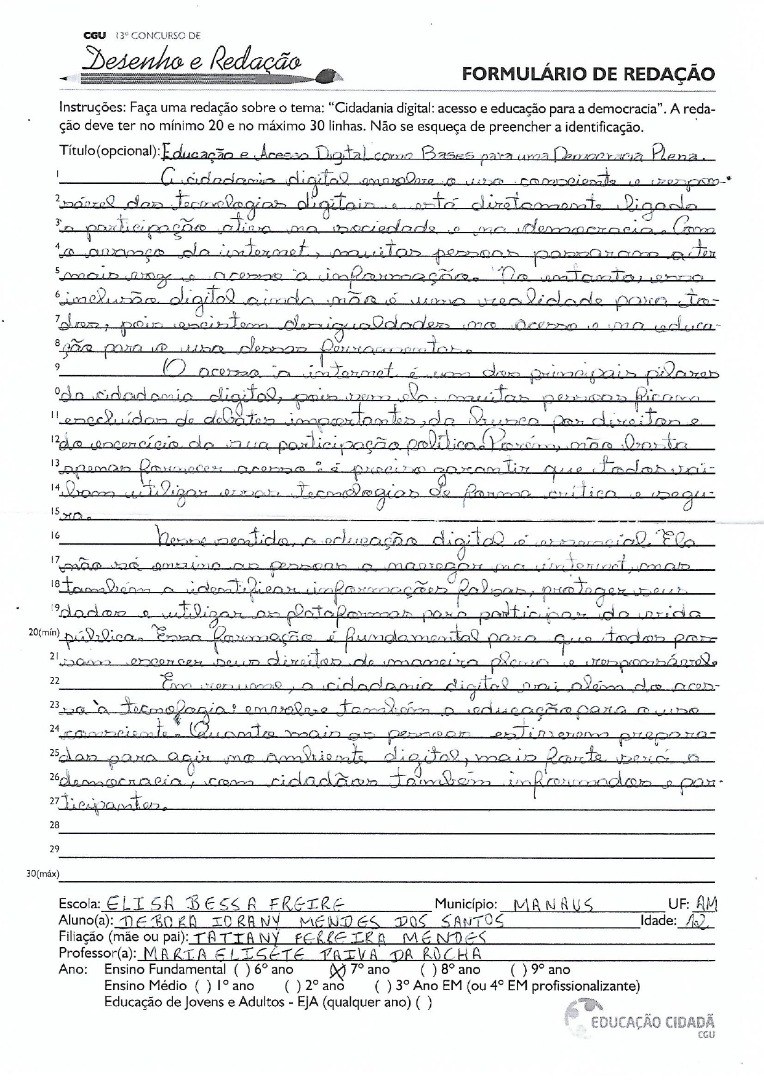 CGU 13º CONCURSO DE
Desenho e Redação
FORMULÁRIO DE REDAÇÃO
Instruções: Faça uma redação sobre o tema: "Cidadania digital: acesso e educação para a democracia". A reda-
ção deve ter no mínimo 20 e no máximo 30 linhas. Não se esqueça de preencher a identificação.
Título(opcional): Educação e Acesso Digital como Bases para uma Democracia Plena.
1 A cidadania digital envolve o uso consciente e respon-
2 sável das tecnologias digitais e está diretamente ligada
3 a participação ativa na sociedade e na democracia. Com
4 o avanço da internet, muitas pessoas passaram a ter
5 mais voz e acesso à informação. No entanto, essa
6 inclusão digital ainda não é uma realidade para to-
7 dos, pois existem desigualdades no acesso e na educa-
8 ção para o uso dessas ferramentas.
9 O acesso à internet é um dos principais pilares
0 da cidadania digital, pois sem ela, muitas pessoas ficam
11 excluídas de debates importantes, da busca por direitos e
12 do exercício da sua participação política. Porém, não basta
13 apenas fornecer acesso: é preciso garantir que todos sai-
14 bam utilizar essas tecnologias de forma crítica e segu-
15 ra.
16 Nesse sentido, a educação digital é essencial. Ela
17 não só ensina as pessoas a navegar na internet, mas
18 também a identificar informações falsas, proteger seus
19 dados e utilizar as plataformas para participar da vida
20(mín) pública. Essa formação é fundamental para que todos pos-
21 sam exercer seus direitos de maneira plena e responsável.
22 Em resumo, a cidadania digital vai além do aces-
23 so à tecnologia: envolve também a educação para o uso
24 consciente. Quanto mais as pessoas estiverem prepara-
25 das para agir no ambiente digital, mais forte será a
26 democracia, com cidadãos também informados e par-
27 ticipantes.
28
29
30(máx)
Escola: ELISA BESSA FREIRE Município: MANAUS UF: AM
Aluno(a): DEBORA IORANY MENDES DOS SANTOS Idade: 12
Filiação (mãe ou pai): TATIANY FERREIRA MENDES
Professor(a): MARIA ELISETE PAIVA DA ROCHA
Ano: Ensino Fundamental ( ) 6º ano (X) 7º ano ( ) 8º ano ( ) 9º ano
Ensino Médio ( ) 1º ano ( ) 2º ano ( ) 3º Ano EM (ou 4º EM profissionalizante)
Educação de Jovens e Adultos - EJA (qualquer ano) ( )
EDUCAÇÃO CIDADÃ
CGU